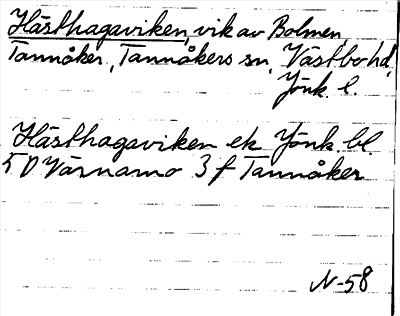 Hästhagaviken, vik av Bolmen
Tannåker, Tannåkers sn, Västbo hd,
Jönk. l.
Hästhagaviken ek Jönk. bl.
5 D Värnamo 3 f Tannåker
N-58